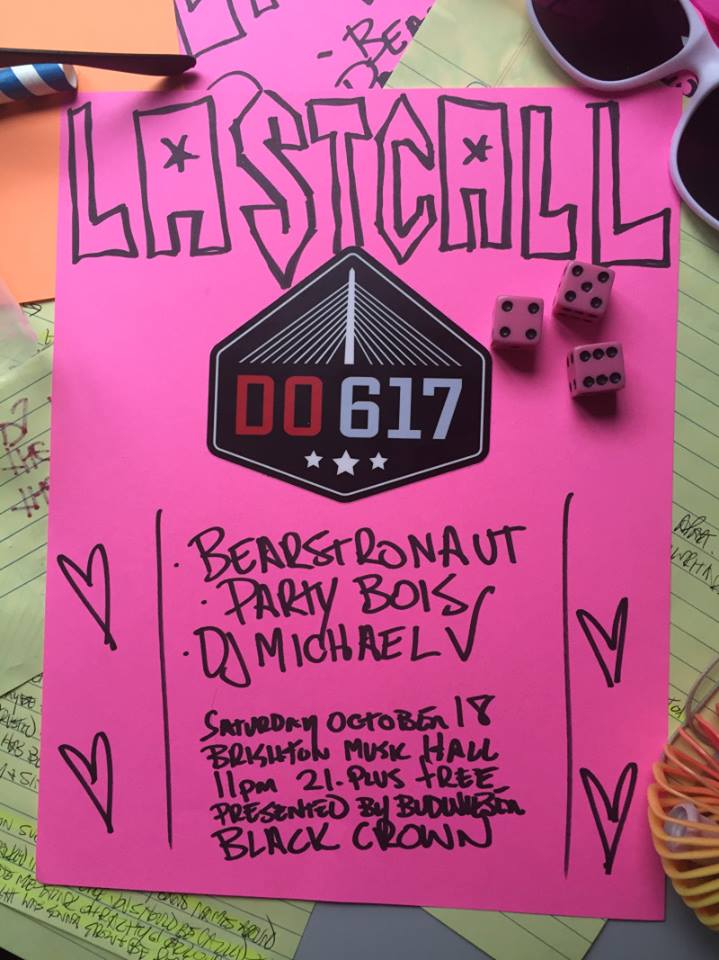 - BEA
LASTCALL
DO 617
· BEARSTRONAUT
· PARTY BOIS
· DJ MICHAEL V
SATURDAY OCTOBER 18
BRIGHTON MUSIC HALL
11pm 21.PLUS FREE
PRESENTED BY BUDWEISER
BLACK CROWN
DJ